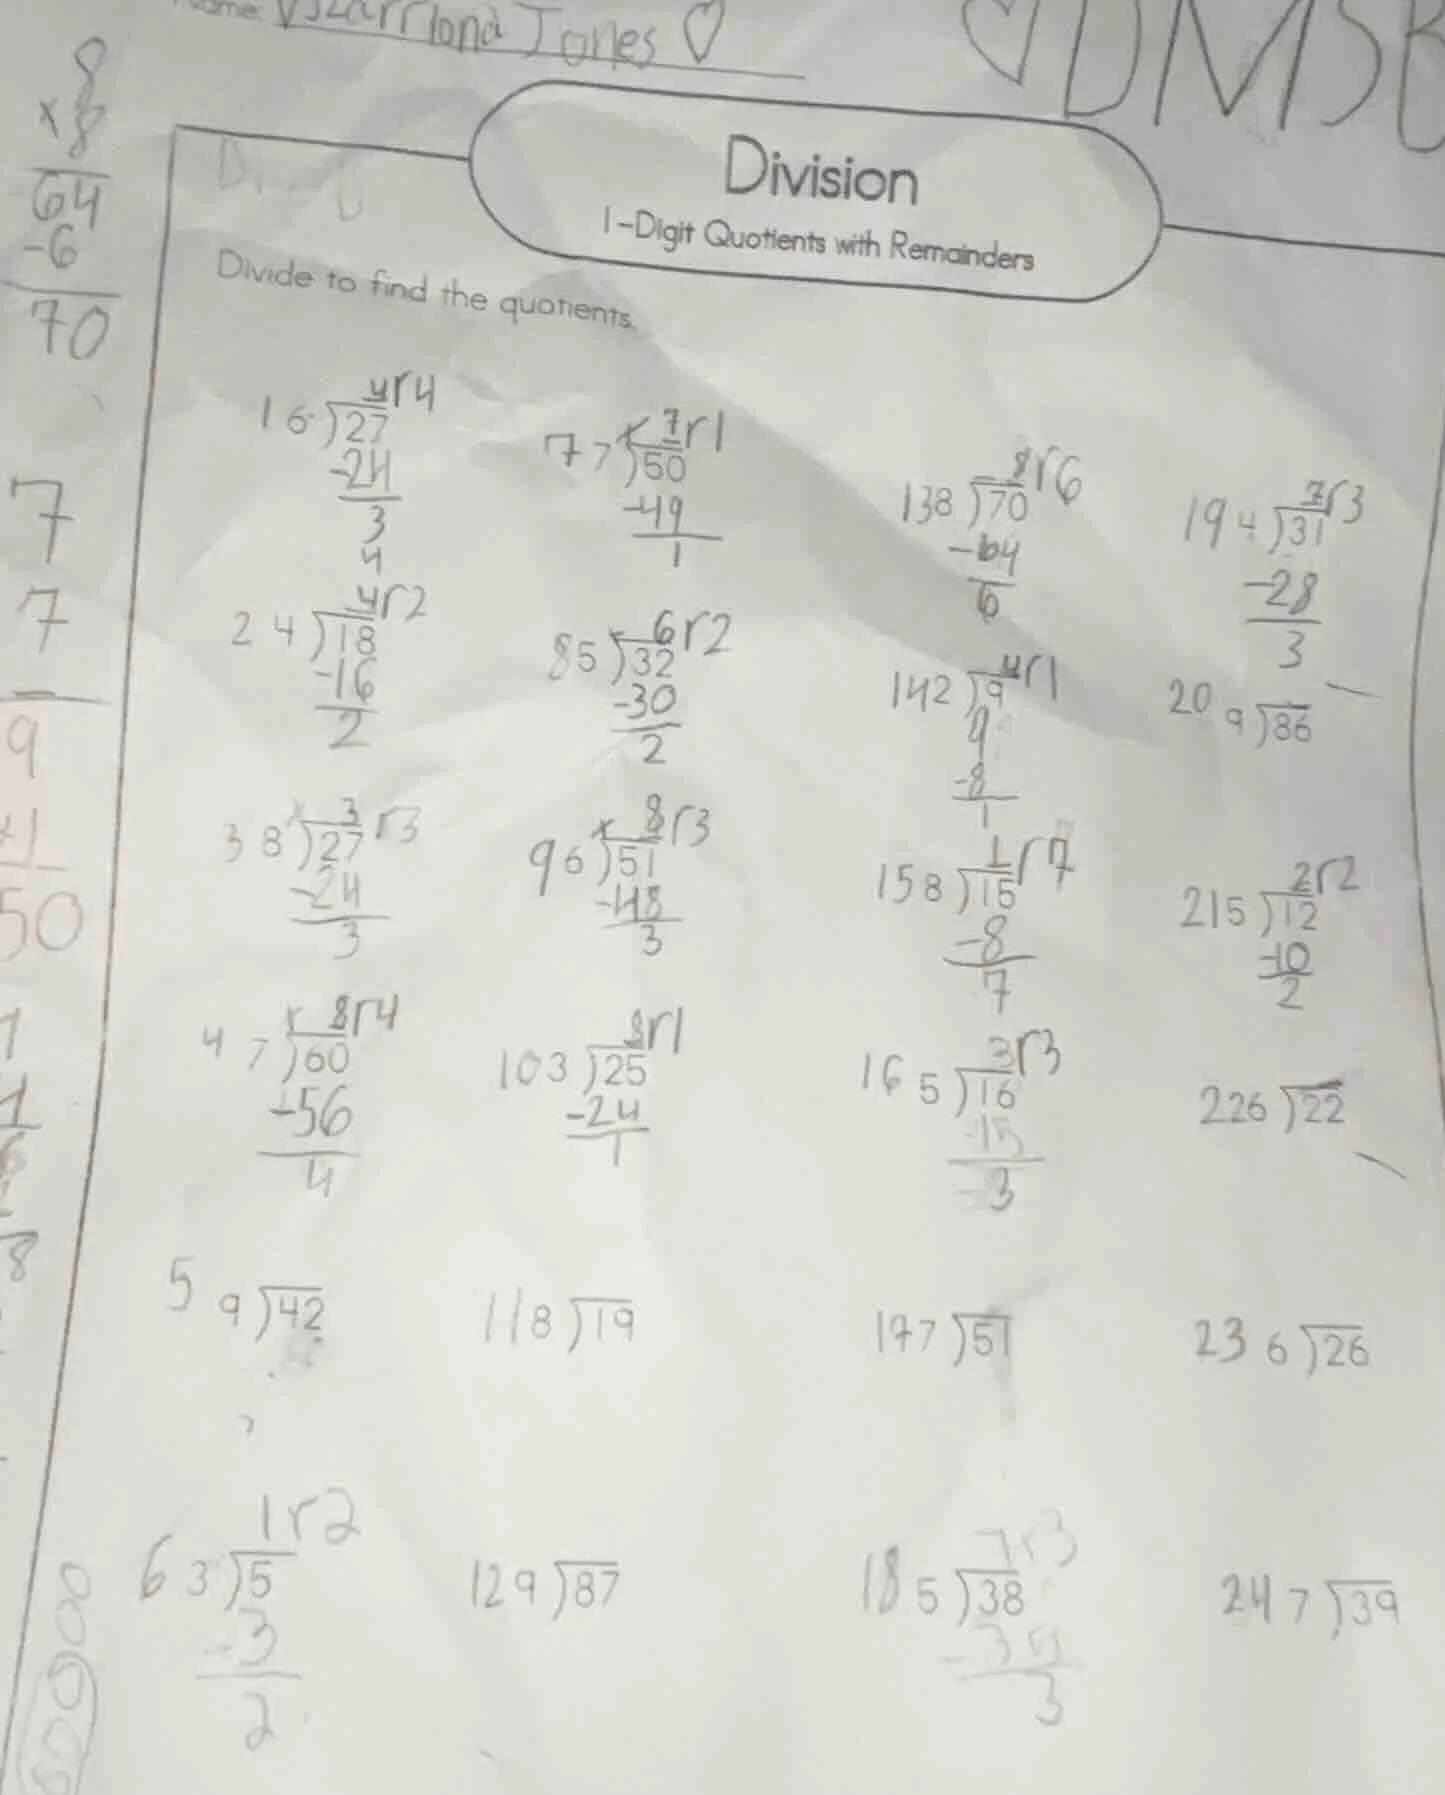 Name: Jones ♡
♡ DMSB
8
×8
64
-6
70
Division
1-Digit Quotients with Remainders
Divide to find the quotients.
1 6)27 4r4
-24
3
4
7 7)50 7r1
-49
1
13 8)70 8r6
-64
6
19 4)31 7r3
-28
3
2 4)18 4r2
-16
2
8 5)32 6r2
-30
2
14 2)9 4r1
9
-8
1
20 9)86
3 8)27 3r3
-24
3
9 6)51 8r3
-48
3
15 8)15 1r7
-8
7
21 5)12 2r2
-10
2
4 7)60 8r4
-56
4
10 3)25 8r1
-24
1
16 5)16 3r3
-15
-3
22 6)22
5 9)42
11 8)19
17 7)51
23 6)26
6 3)5 1r2
-3
2
12 9)87
18 5)38 7r3
-35
3
24 7)39
7
7
9
×1
50
8